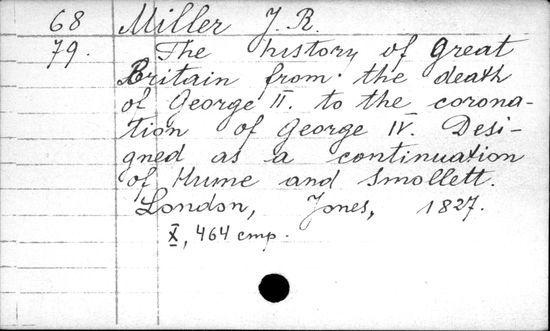 68 Miller J. R.
79. The history of Great
Britain from the death
of George II. to the corona-
tion of George IV. Desi-
gned as a continuation
of Hume and Smollett.
London, Jones, 1827.
X, 464 cmp.